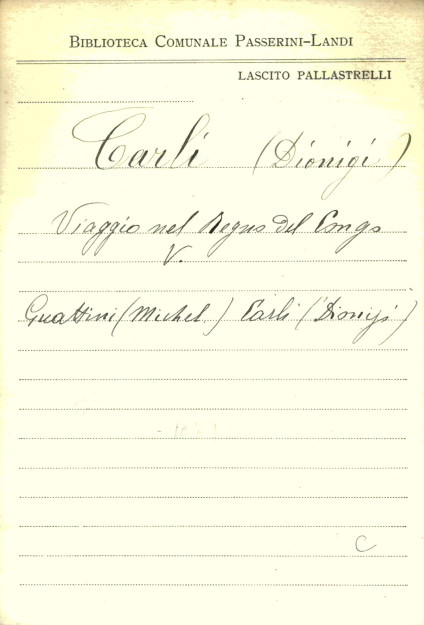 BIBLIOTECA COMUNALE PASSERINI-LANDI
LASCITO PALLASTRELLI
Carli (Dionigi)
Viaggio nel Regno del Congo
V.
Guattini (Michel.) Carli (Dionigi)
C